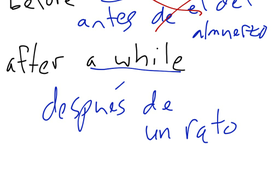 before
antes de el del
almuerzo
after a while
después de
un rato